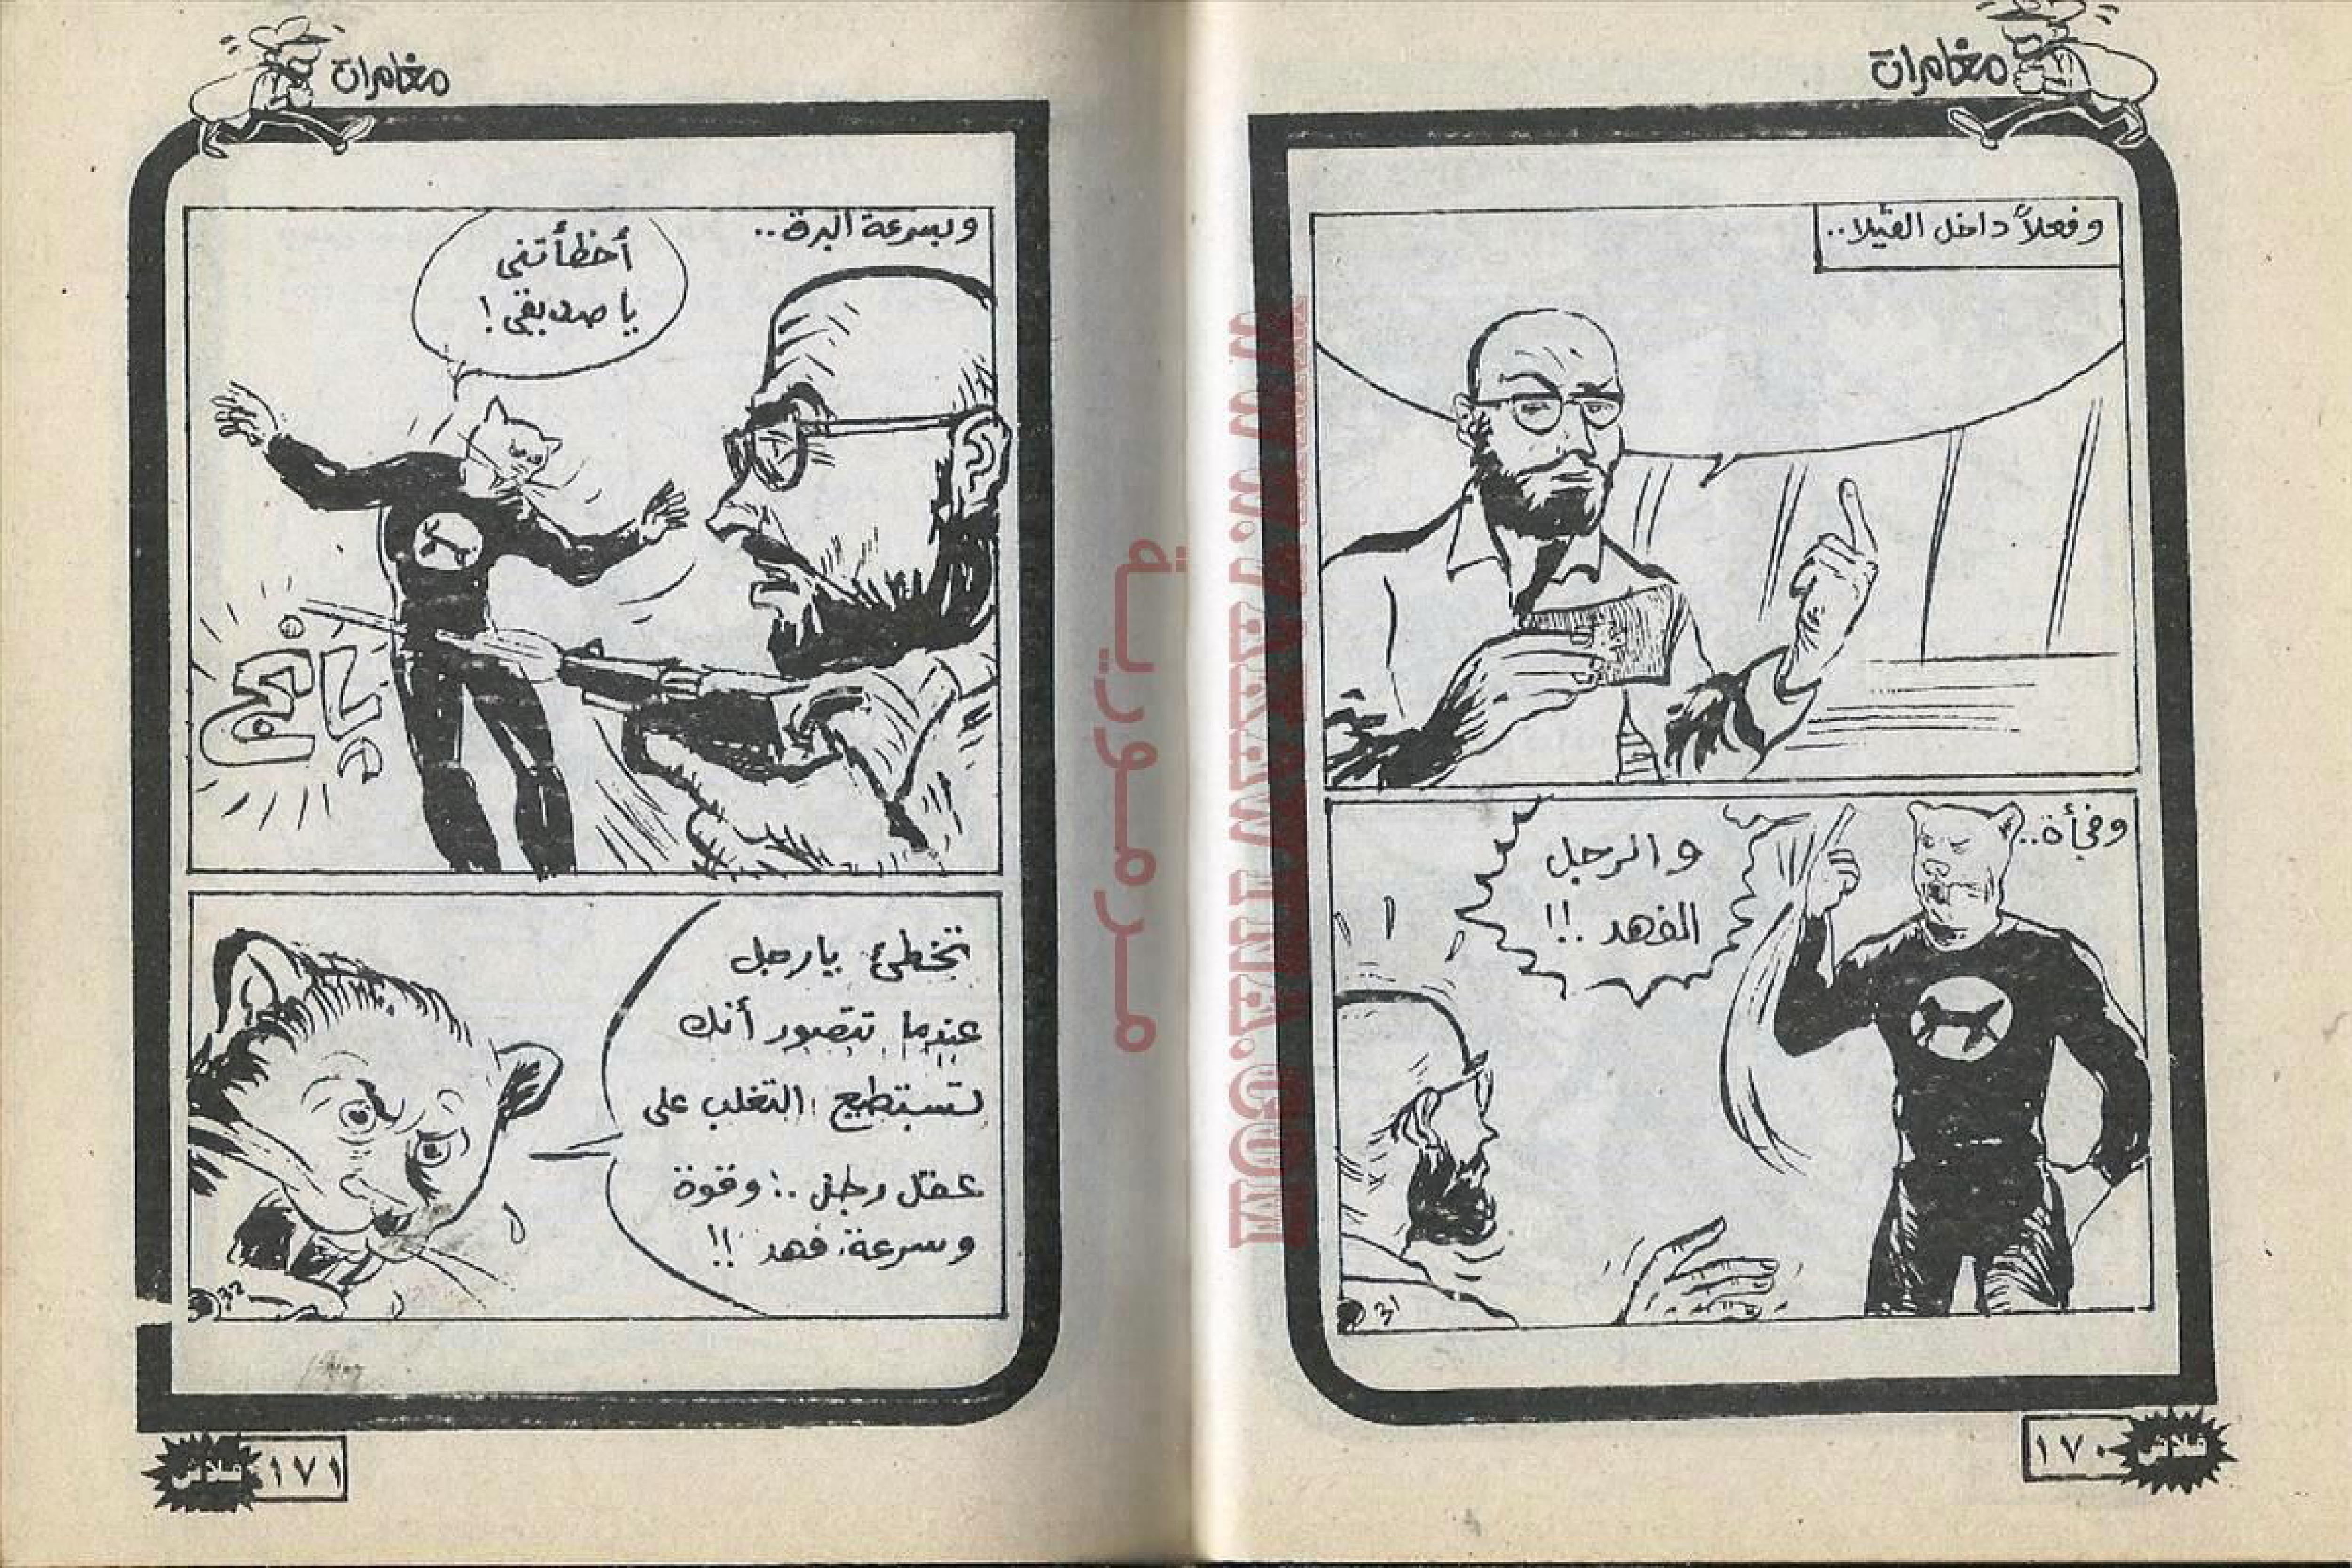 مغامرات
وفعلاً داخل الفيلا..
وفجأة..
والرجل
الفهد !!
31
١٧٠
فلاش
مغامرات
وبسرعة البرق..
أخطأتنى
يا صديقى !
بانج
تخطئ يارجل
عندما تتصور أنك
تستطيع التغلب على
عقل رجل .. وقوة
وسرعة فهد !!
32
١٧١
فلاش
مرمورية